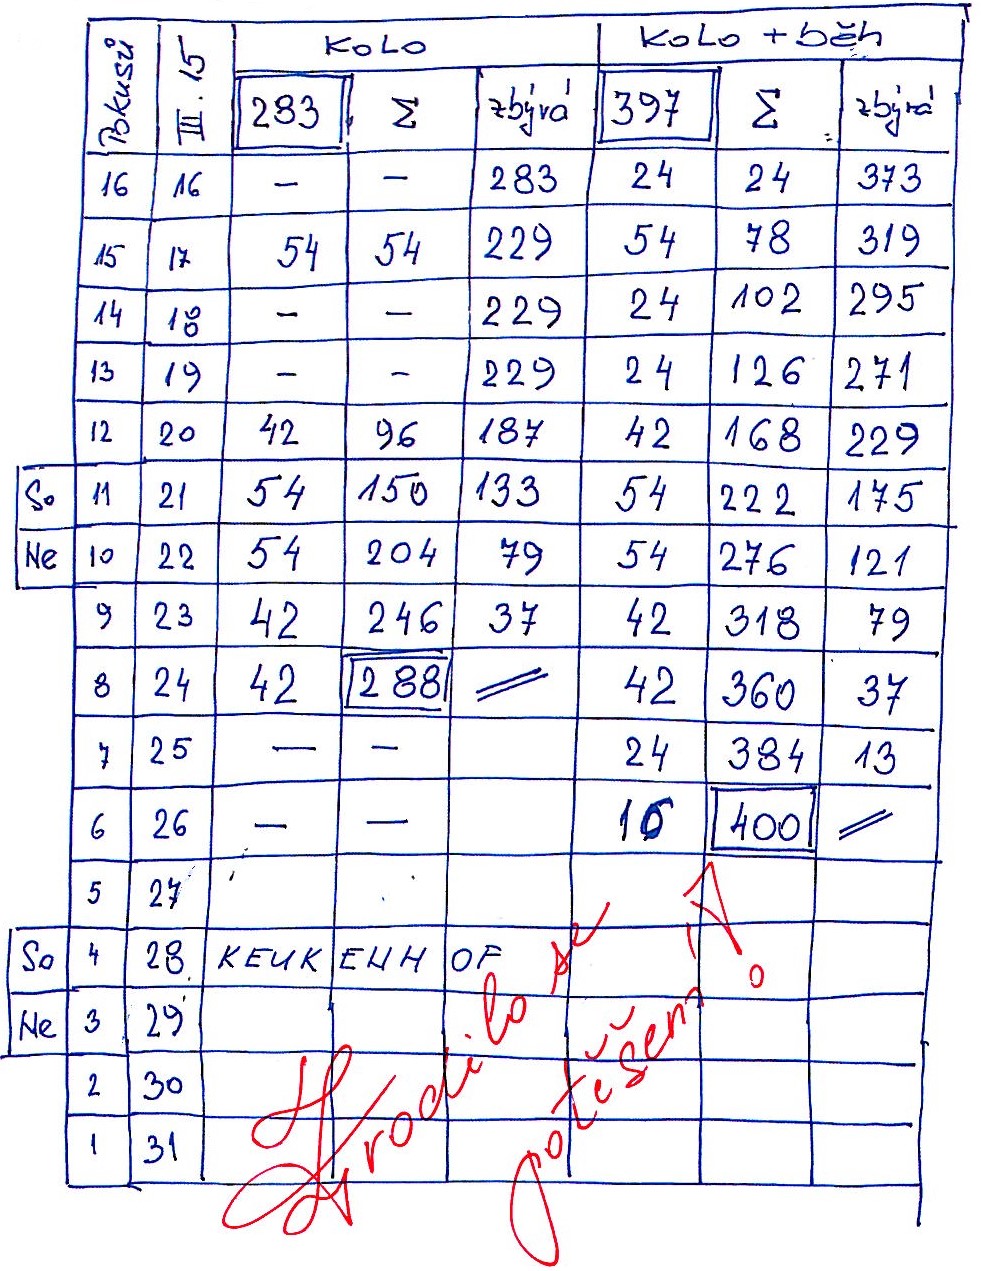 Pokusů III. 15 KOLO KOLO + běh
283 Σ zbývá 397 Σ zbývá
16 16 – – 283 24 24 373
15 17 54 54 229 54 78 319
14 18 – – 229 24 102 295
13 19 – – 229 24 126 271
12 20 42 96 187 42 168 229
So 11 21 54 150 133 54 222 175
Ne 10 22 54 204 79 54 276 121
9 23 42 246 37 42 318 79
8 24 42 288 42 360 37
7 25 – – 24 384 13
6 26 – – 16 400
5 27
So 4 28 KEUKENHOF
Ne 3 29
2 30
1 31
Zrodilo se
potěšení!